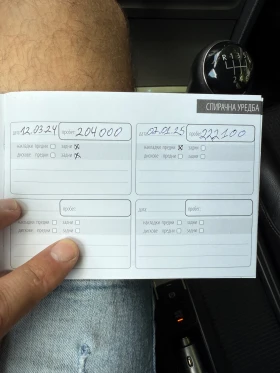 R 1 3 5
2 4
СПИРАЧНА УРЕДБА
дата: 12.03.24 пробег: 204000
накладки предни ☐ задни ☒
дискове предни ☐ задни ☒
дата: 07.01.25 пробег: 222100
накладки предни ☒ задни ☐
дискове предни ☐ задни ☐
пробег:
накладки предни ☐ задни ☐
дискове предни ☐ задни ☐
дата: пробег:
накладки предни ☐ задни ☐
дискове предни ☐ задни ☐